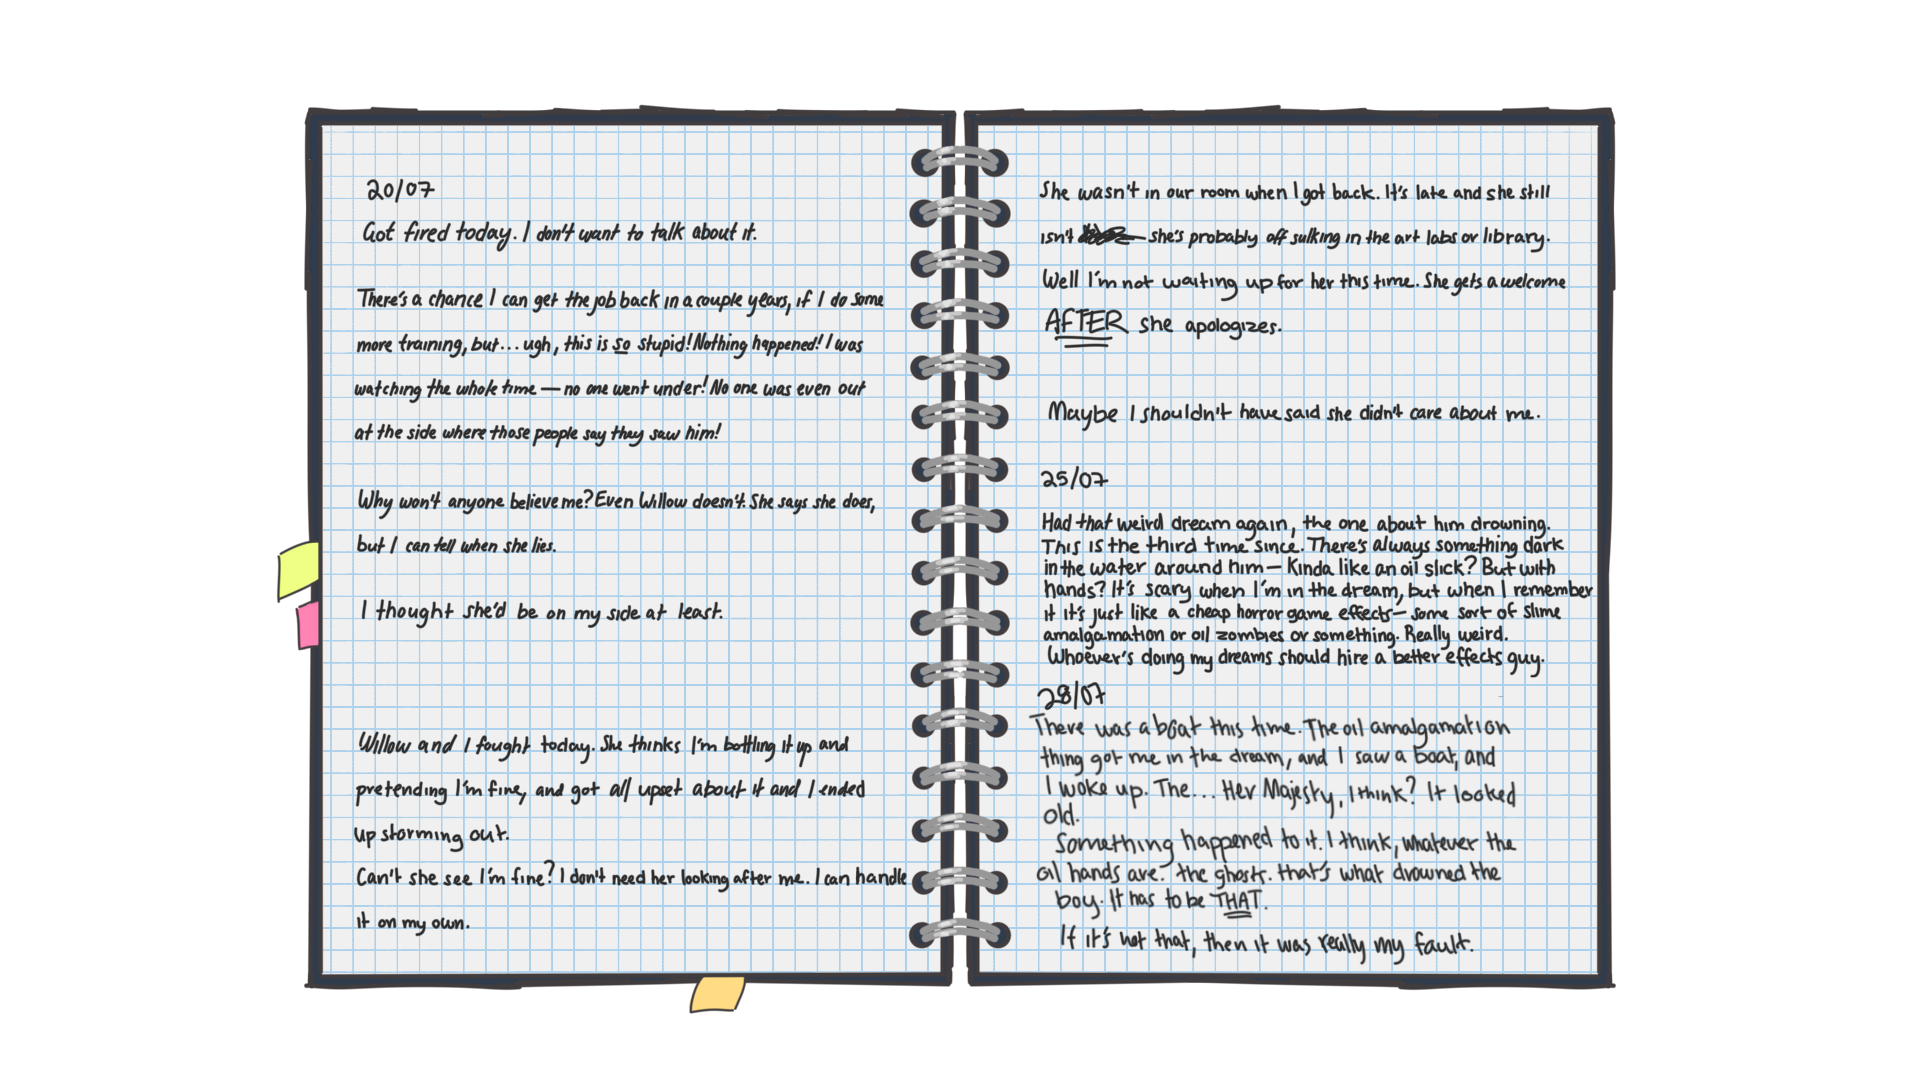 20/07
Got fired today. I don't want to talk about it.
There's a chance I can get the job back in a couple years, if I do some
more training, but... ugh, this is so stupid! Nothing happened! I was
watching the whole time — no one went under! No one was even out
at the side where those people say they saw him!
Why won't anyone believe me? Even Willow doesn't. She says she does,
but I can tell when she lies.
I thought she'd be on my side at least.
Willow and I fought today. She thinks I'm bottling it up and
pretending I'm fine, and got all upset about it and I ended
up storming out.
Can't she see I'm fine? I don't need her looking after me. I can handle
it on my own.
She wasn't in our room when I got back. It's late and she still
isn't — she's probably off sulking in the art labs or library.
Well I'm not waiting up for her this time. She gets a welcome
AFTER she apologizes.
Maybe I shouldn't have said she didn't care about me.
25/07
Had that weird dream again, the one about him drowning.
This is the third time since. There's always something dark
in the water around him — Kinda like an oil slick? But with
hands? It's scary when I'm in the dream, but when I remember
it it's just like a cheap horror game effects — some sort of slime
amalgamation or oil zombies or something. Really weird.
Whoever's doing my dreams should hire a better effects guy.
28/07
There was a boat this time. The oil amalgamation
thing got me in the dream, and I saw a boat, and
I woke up. The... Her Majesty, I think? It looked
old.
Something happened to it. I think, whatever the
oil hands are. the ghosts. that's what drowned the
boy. It has to be THAT.
If it's not that, then it was really my fault.